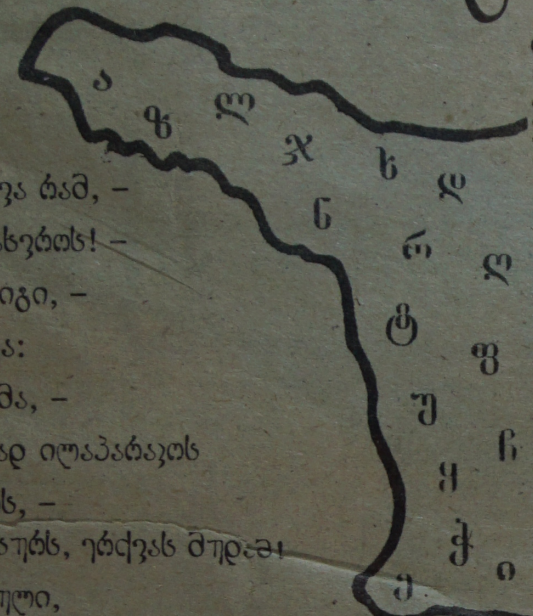 ა
ზ ლ
ჯ ს დ
ნ
რ ღ
ტ
ფ
უ
ჩ
ყ
ჭ
ე ი
ვა რამ, –
ასვროს! –
იგი, –
ა:
მა, –
ად ილაპარაკოს
ს, –
აურს, ერქვას მუდამ!
ული,